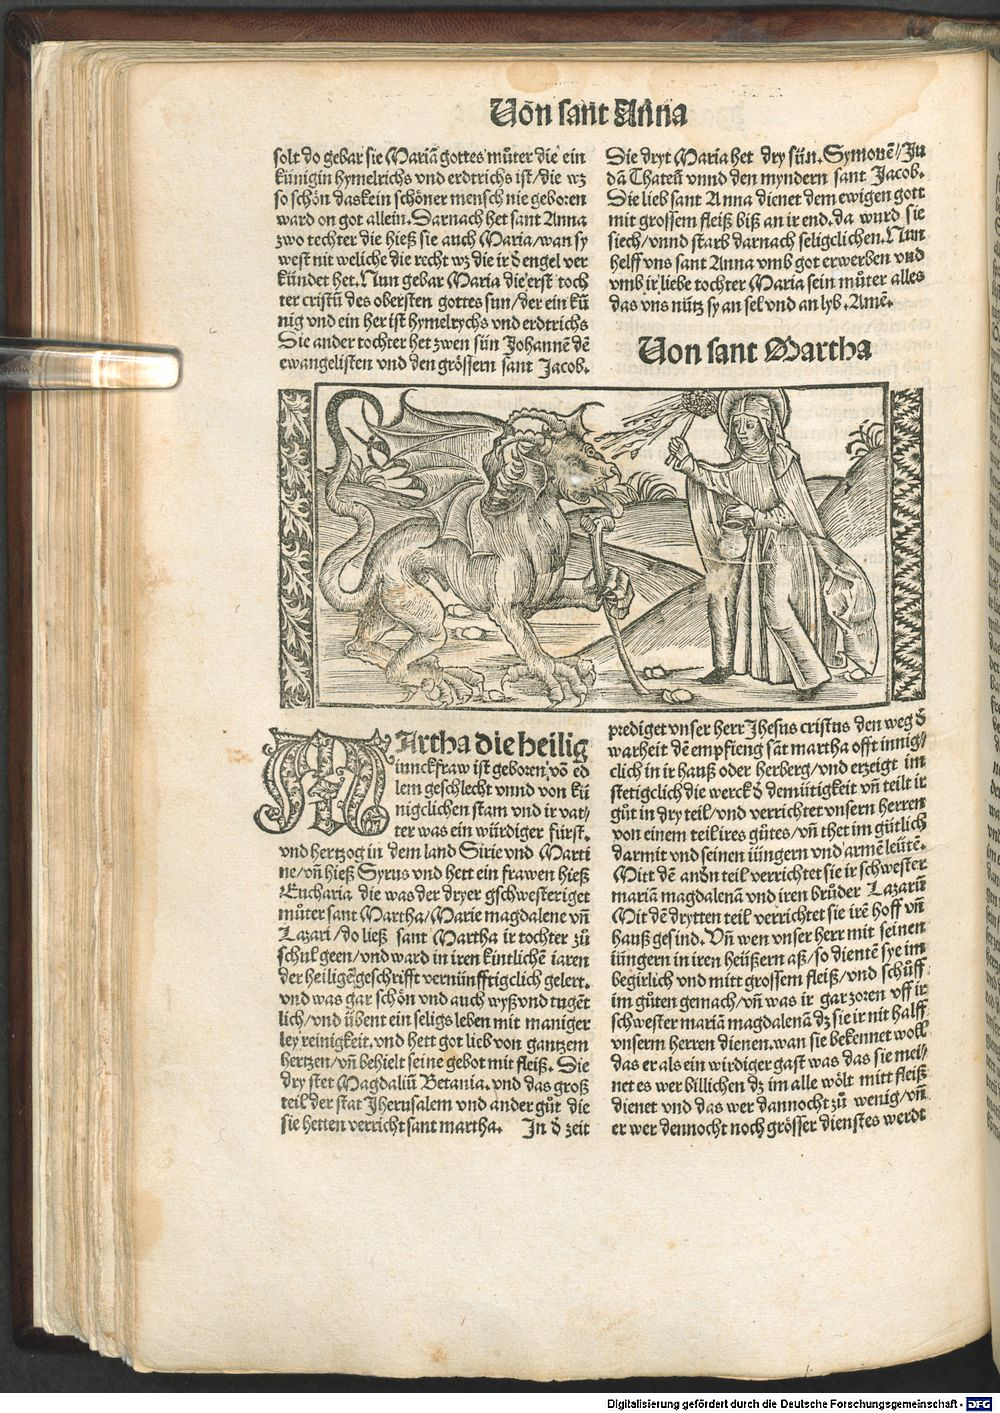 Von sant Anna
solt do gebar sie Mariā gottes můter die ein
künigin hymelrichs vnd erdtrichs ist/die wz
so schön das kein schöner mensch nie geboren
ward on got allein. Darnach het sant Anna
zwo techter die hieß sie auch Maria/wan sy
west nit weliche die recht wz die ir d̄ engel ver
kündet het. Nun gebar Maria die erst toch
ter cristū des obersten gottes sun/der ein kü
nig vnd ein her ist hymelrychs vnd erdtrichs
Die ander tochter het zwen sün Johannē dē
ewangelisten vnd den grössern sant Jacob.
Die dryt Maria het dry sün. Symonē/Ju
dā Thateū vnnd den myndern sant Jacob.
Die lieb sant Anna dienet dem ewigen gott
mit grossem fleiß biß an ir end. da wurd sie
siech/vnnd starb darnach seligclichen. Nun
helff vns sant Anna vmb got erwerben vnd
vmb ir liebe tochter Maria sein můter alles
das vns nütz sy an sel vnd an lyb. Amē.
Von sant Martha
MArtha die heilig
iunckfraw ist geboren vō ed
lem geschlecht vnnd von kü
nigclichen stam vnd ir vat-
ter was ein würdiger fürst.
vnd hertzog in dem land Sirie vnd Marti
ne/vn̄ hieß Syrus vnd hett ein frawen hieß
Eucharia die was der dryer gschwesteriget
můter sant Martha/Marie magdalene vn̄
Lazari/do ließ sant Martha ir tochter zů
schul geen/vnd ward in iren kintlichē iaren
der heiligē geschrifft vernünfftigclich gelert.
vnd was gar schön vnd auch wyß vnd tugēt
lich/vnd übent ein seligs leben mit maniger
ley reinigkeit. vnd hett got lieb von gantzem
hertzen/vn̄ behielt seine gebot mit fleiß. Die
dry stet Magdaliū Betania. vnd das groß
teil der stat Jherusalem vnd ander gůt die
sie hetten verricht sant martha. In d̄ zeit
prediget vnser herr Jhesus cristus den weg d̄
warheit dē empfieng sāt martha offt innig/
clich in ir hauß oder herberg/vnd erzeigt im
stetigclich die werck d̄ demütigkeit vn̄ teilt ir
gůt in dry teil/vnd verrichtet vnsern herren
von einem teil ires gůtes/vn̄ thet im gůtlich
darmit vnd seinen iüngern vnd armē leütē.
Mitt dē andn̄ teil verrichtet sie ir schwester
mariā magdalenā vnd iren brůder Lazarū
Mit dē drytten teil verrichtet sie irē hoff vn̄
hauß gesind. Vn̄ wen vnser herr mit seinen
iüngern in iren heüßern aß/so dientē sye im
begirlich vnd mitt grossem fleiß/vnd schůff
im gůten gemach/vn̄ was ir gar zoren vff ir
schwester mariā magdalenā dz sie ir nit halff
vnserm herren dienen. wan sie bekennet woll
das er als ein wirdiger gast was das sie mei/
net es wer billichen dz im alle wölt mitt fleiß
dienet vnd das wer dannocht zů wenig/vn̄
er wer dennocht noch grösser dienstes werdt
Digitalisierung gefördert durch die Deutsche Forschungsgemeinschaft - DFG